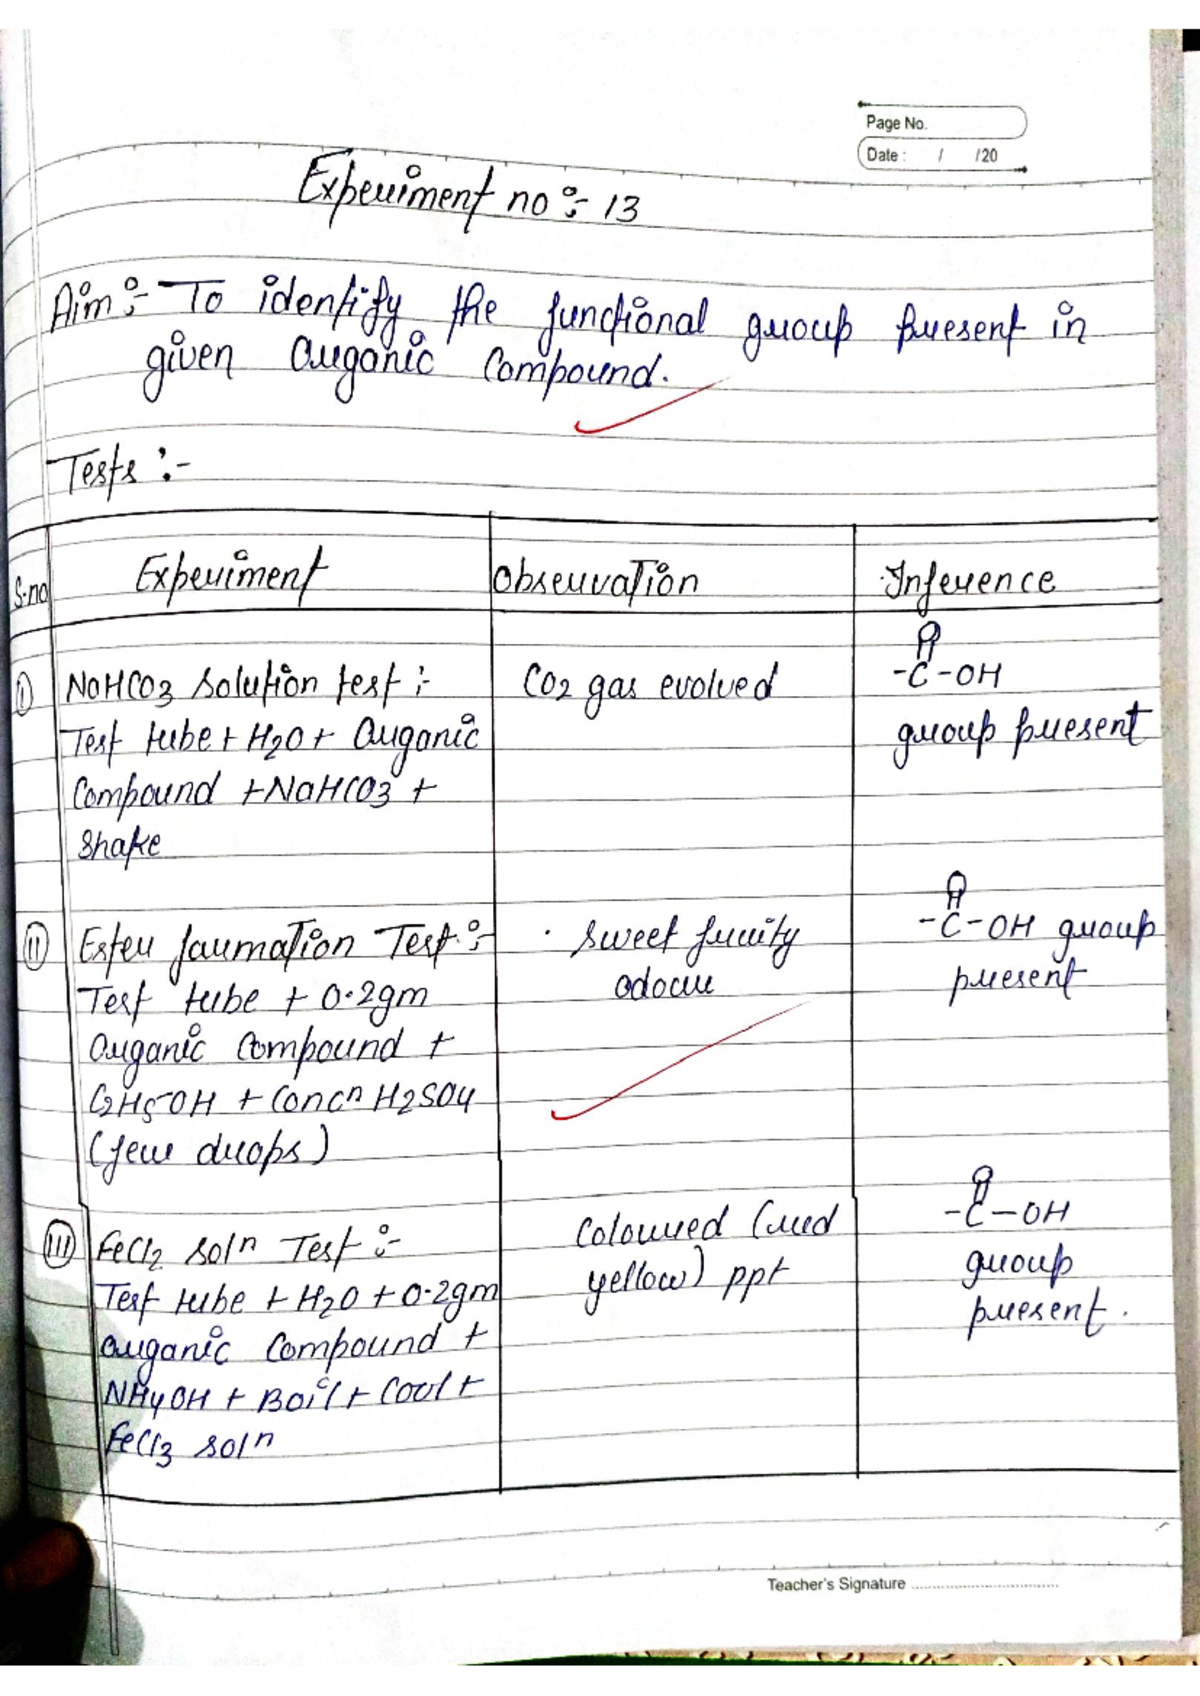 Page No.
Date : / /20
Experiment no :- 13
Aim :- To identify the functional group present in
given organic compound.
Tests :-
S.no Experiment Observation Inference
O
(i) NaHCO3 solution test :- CO2 gas evolved -C-OH
Test tube + H2O + Organic group present
Compound + NaHCO3 +
Shake
O
(ii) Ester formation Test :- Sweet fruity -C-OH group
Test tube + 0.2gm odour present
organic compound +
C2H5-OH + Concn H2SO4
(few drops)
O
(iii) FeCl2 soln Test :- Coloured (red -C-OH
Test tube + H2O + 0.2gm yellow) ppt group
organic compound + present.
NH4OH + Boil + Cool +
FeCl3 soln
Teacher's Signature ....................................